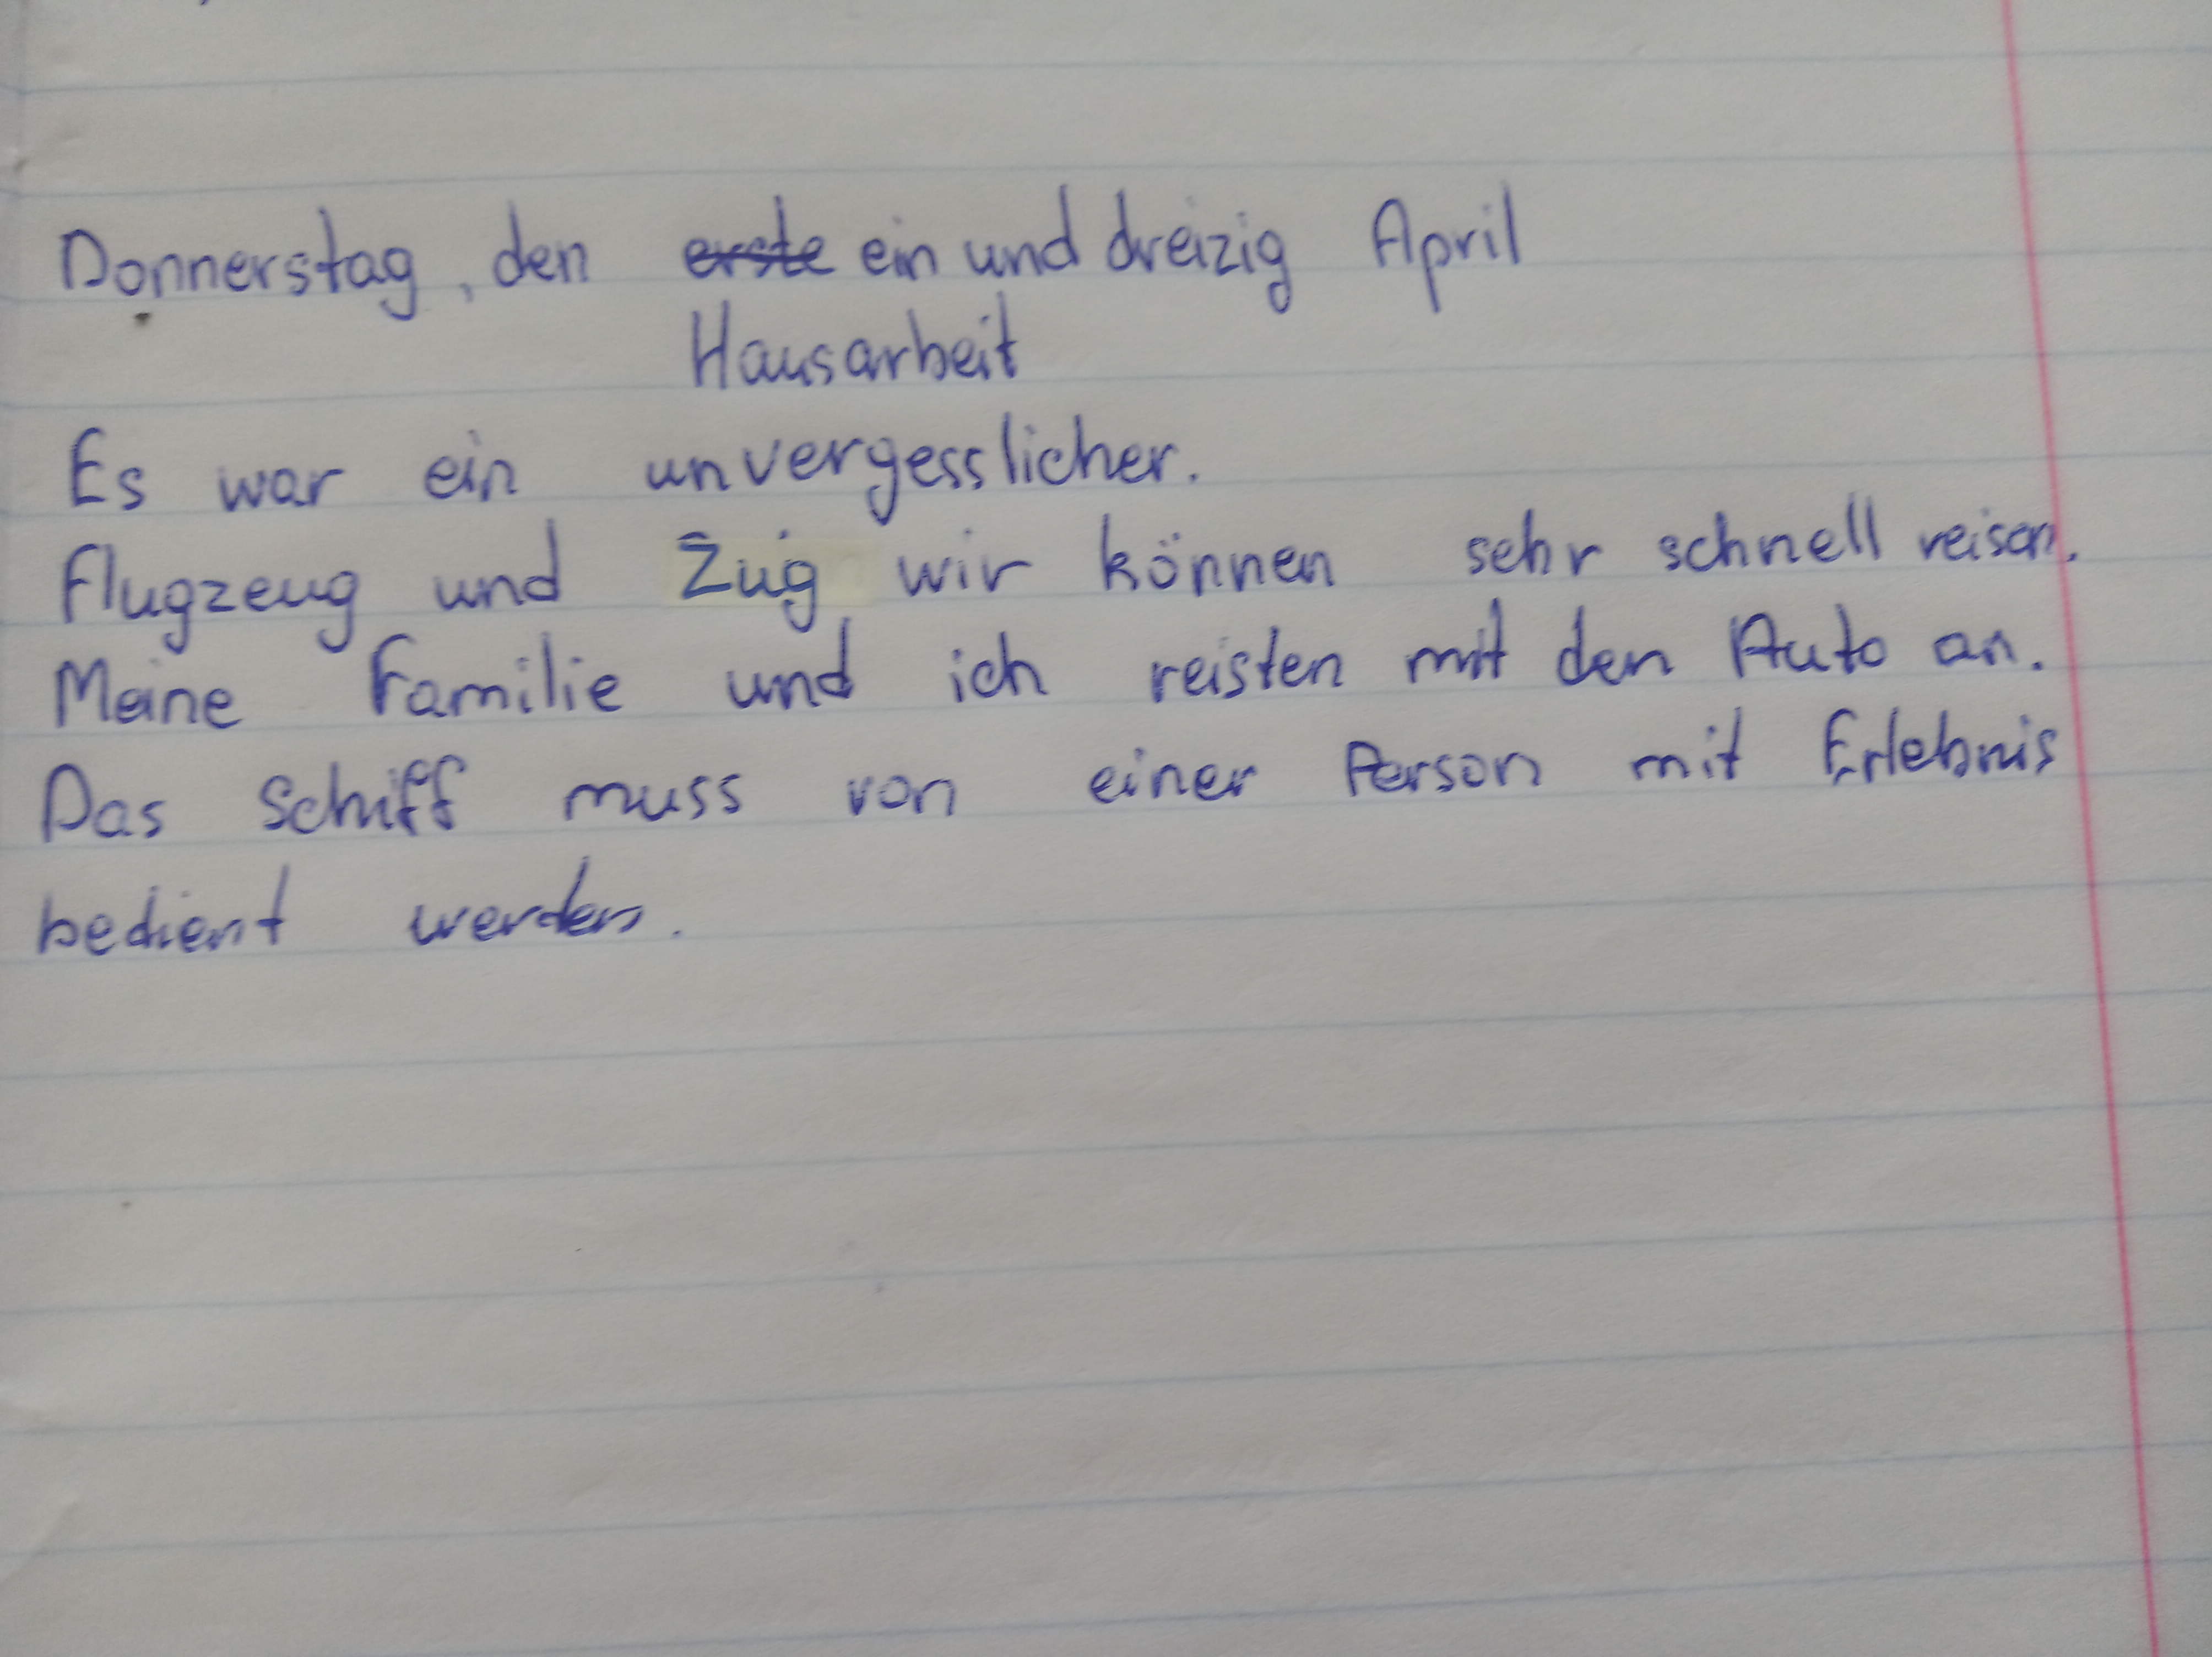 Donnerstag, den erste ein und dreizig April
Hausarbeit
Es war ein unvergesslicher.
Flugzeug und Zug wir können sehr schnell reisen.
Meine Familie und ich reisten mit den Auto an.
Das Schiff muss von einer Person mit Erlebnis
bedient werden.